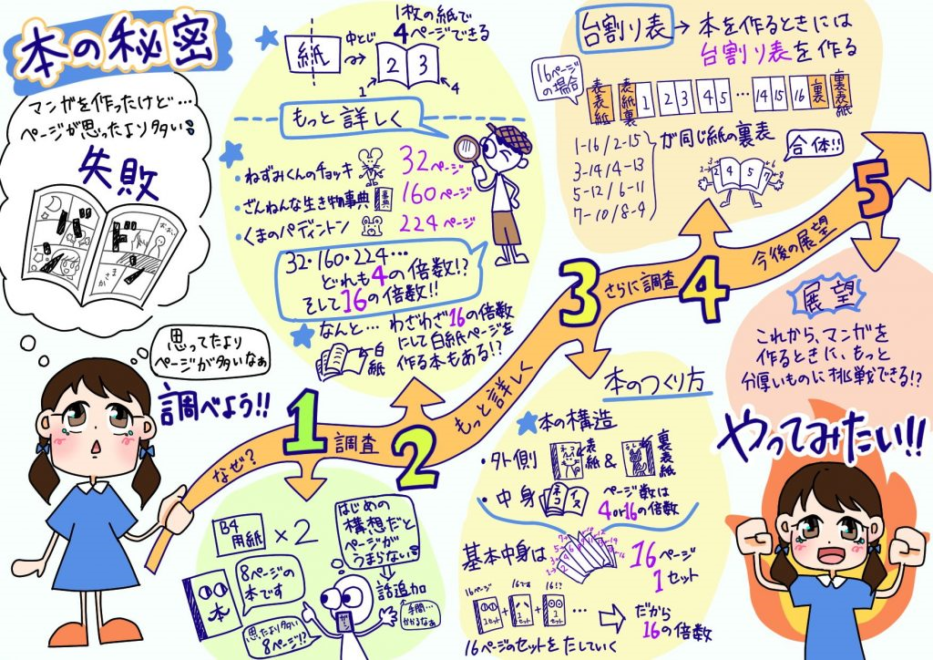 本の秘密
マンガを作ったけど…
ページが思ったより多い
失敗
思ってたより
ページが多いなぁ
調べよう!!
なぜ?
1
調査
2
もっと詳しく
3
さらに調査
4
今後の展望
5
B4
用紙
×2
8ページの
本です
本
思ったより多い
8ページ!?
はじめの
構想だと
ページが
つまらない
話追加
手間…
かかるなぁ
紙
中とじ
1枚の紙で
4ページできる
2 3
1
4
もっと詳しく
・ねずみくんのチョッキ 32ページ
・ざんねんな生き物事典 160ページ
・くまのパディントン 224ページ
32・160・224…
どれも4の倍数!?
そして16の倍数!!
なんと… わざわざ16の倍数
にして白紙ページを
作る本もある!?
白紙
本のつくり方
本の構造
・外側 表紙 & 裏表紙
・中身 ページ数は
4or16の倍数
基本中身は
16ページ
1セット
16ページ
16ページのセットをたしていく
だから
16の倍数
台割り表→本を作るときには
台割り表を作る
16ページ
の場合
表表紙 表紙裏 1 2 3 4 5 … 14 15 16 裏 裏表紙
1-16/2-15
3-14/4-13
5-12/6-11
7-10/8-9
が同じ紙の裏表
合体!!
2 4 5 7
展望
これから、マンガを
作るときに、もっと
分厚いものに挑戦できる!?
やってみたい!!